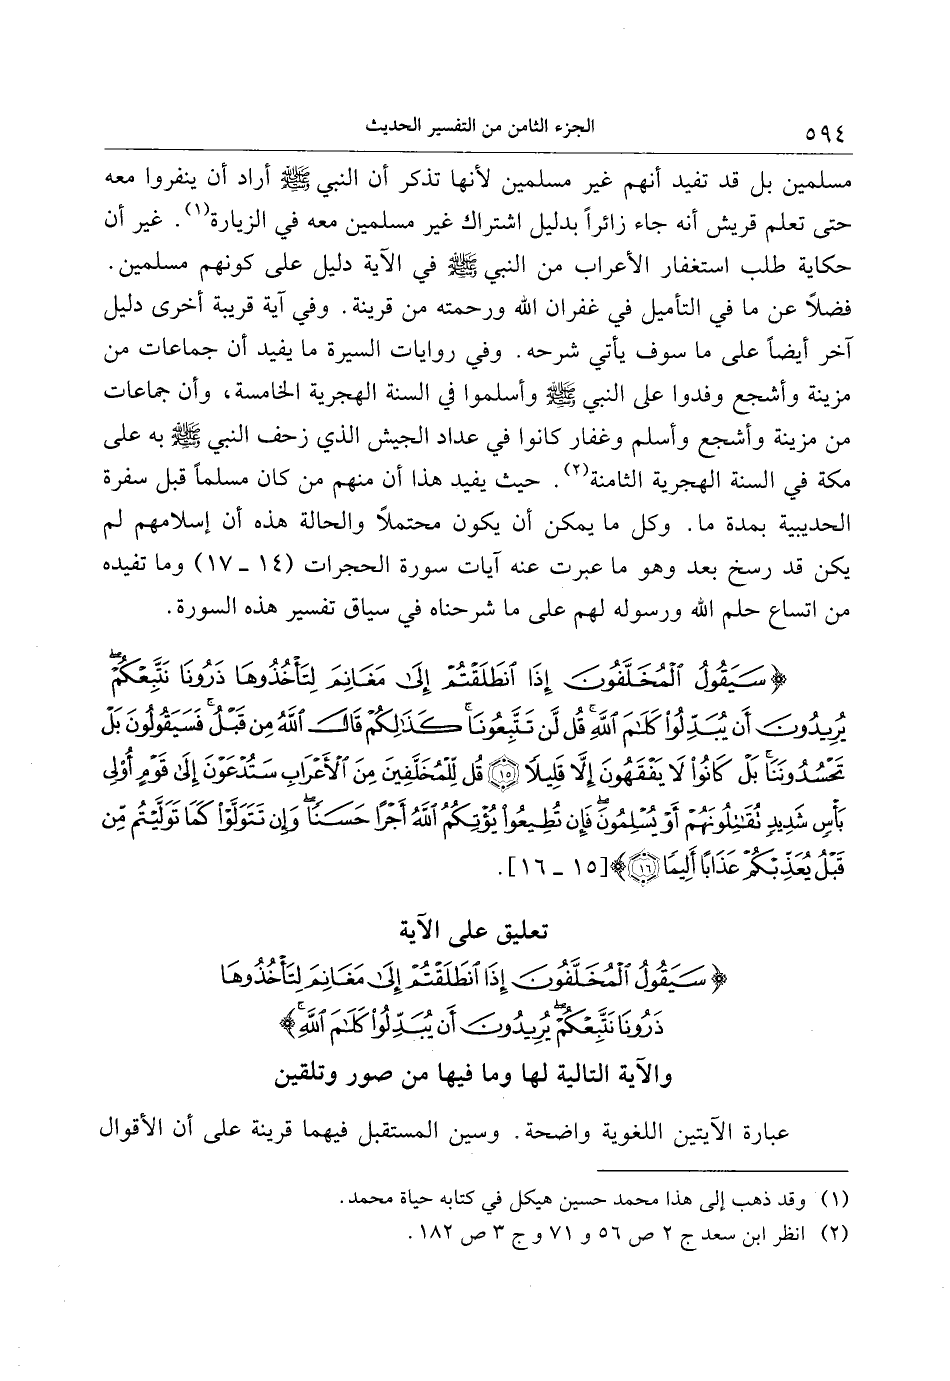 ٥٩٤ الجزء الثامن من التفسير الحديث
مسلمين بل قد تفيد أنهم غير مسلمين لأنها تذكر أن النبي ﷺ أراد أن ينفروا معه
حتى تعلم قريش أنه جاء زائراً بدليل اشتراك غير مسلمين معه في الزيارة(١). غير أن
حكاية طلب استغفار الأعراب من النبي ﷺ في الآية دليل على كونهم مسلمين.
فضلاً عن ما في التأميل في غفران الله ورحمته من قرينة. وفي آية قريبة أخرى دليل
آخر أيضاً على ما سوف يأتي شرحه. وفي روايات السيرة ما يفيد أن جماعات من
مزينة وأشجع وفدوا على النبي ﷺ وأسلموا في السنة الهجرية الخامسة، وأن جماعات
من مزينة وأشجع وأسلم وغفار كانوا في عداد الجيش الذي زحف النبي ﷺ به على
مكة في السنة الهجرية الثامنة(٢). حيث يفيد هذا أن منهم من كان مسلماً قبل سفرة
الحديبية بمدة ما. وكل ما يمكن أن يكون محتملاً والحالة هذه أن إسلامهم لم
يكن قد رسخ بعد وهو ما عبرت عنه آيات سورة الحجرات (١٤ ـ ١٧) وما تفيده
من اتساع حلم الله ورسوله لهم على ما شرحناه في سياق تفسير هذه السورة.
﴿سَيَقُولُ ٱلْمُخَلَّفُونَ إِذَا ٱنطَلَقْتُمْ إِلَىٰ مَغَانِمَ لِتَأْخُذُوهَا ذَرُونَا نَتَّبِعْكُمْۖ
يُرِيدُونَ أَن يُبَدِّلُواْ كَلَٰمَ ٱللَّهِۚ قُل لَّن تَتَّبِعُونَاۚ كَذَٰلِكُمْ قَالَ ٱللَّهُ مِن قَبْلُۖ فَسَيَقُولُونَ بَلْ
تَحْسُدُونَنَاۚ بَلْ كَانُواْ لَا يَفْقَهُونَ إِلَّا قَلِيلًا ١٥ قُل لِّلْمُخَلَّفِينَ مِنَ ٱلْأَعْرَابِ سَتُدْعَوْنَ إِلَىٰ قَوْمٍ أُوْلِى
بَأْسٍ شَدِيدٍ تُقَٰتِلُونَهُمْ أَوْ يُسْلِمُونَۖ فَإِن تُطِيعُواْ يُؤْتِكُمُ ٱللَّهُ أَجْرًا حَسَنًاۖ وَإِن تَتَوَلَّوْاْ كَمَا تَوَلَّيْتُم مِّن
قَبْلُ يُعَذِّبْكُمْ عَذَابًا أَلِيمًا ١٦﴾ [١٥ ـ ١٦].
تعليق على الآية
﴿سَيَقُولُ ٱلْمُخَلَّفُونَ إِذَا ٱنطَلَقْتُمْ إِلَىٰ مَغَانِمَ لِتَأْخُذُوهَا
ذَرُونَا نَتَّبِعْكُمْۖ يُرِيدُونَ أَن يُبَدِّلُواْ كَلَٰمَ ٱللَّهِۚ﴾
والآية التالية لها وما فيها من صور وتلقين
عبارة الآيتين اللغوية واضحة. وسين المستقبل فيهما قرينة على أن الأقوال
(١) وقد ذهب إلى هذا محمد حسين هيكل في كتابه حياة محمد.
(٢) انظر ابن سعد ج ٢ ص ٥٦ و ٧١ و ج ٣ ص ١٨٢.